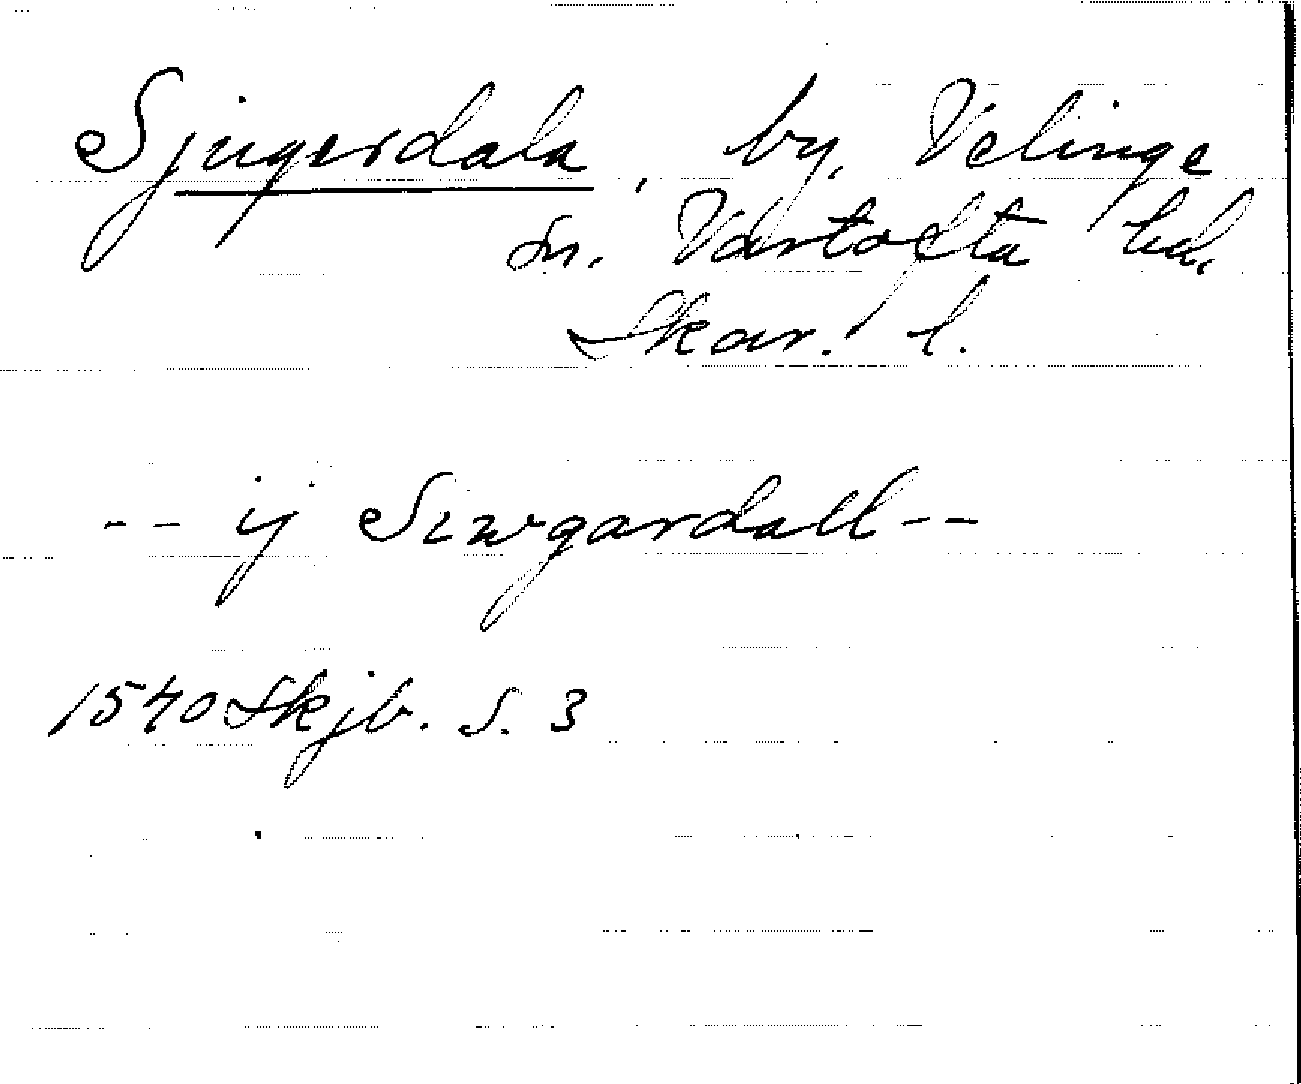 Sjugerdala, by, Velinge
sn. Vartofta hd,
Skar. l.
-- ij Siwgardall--
1540 Skjb. S. 3